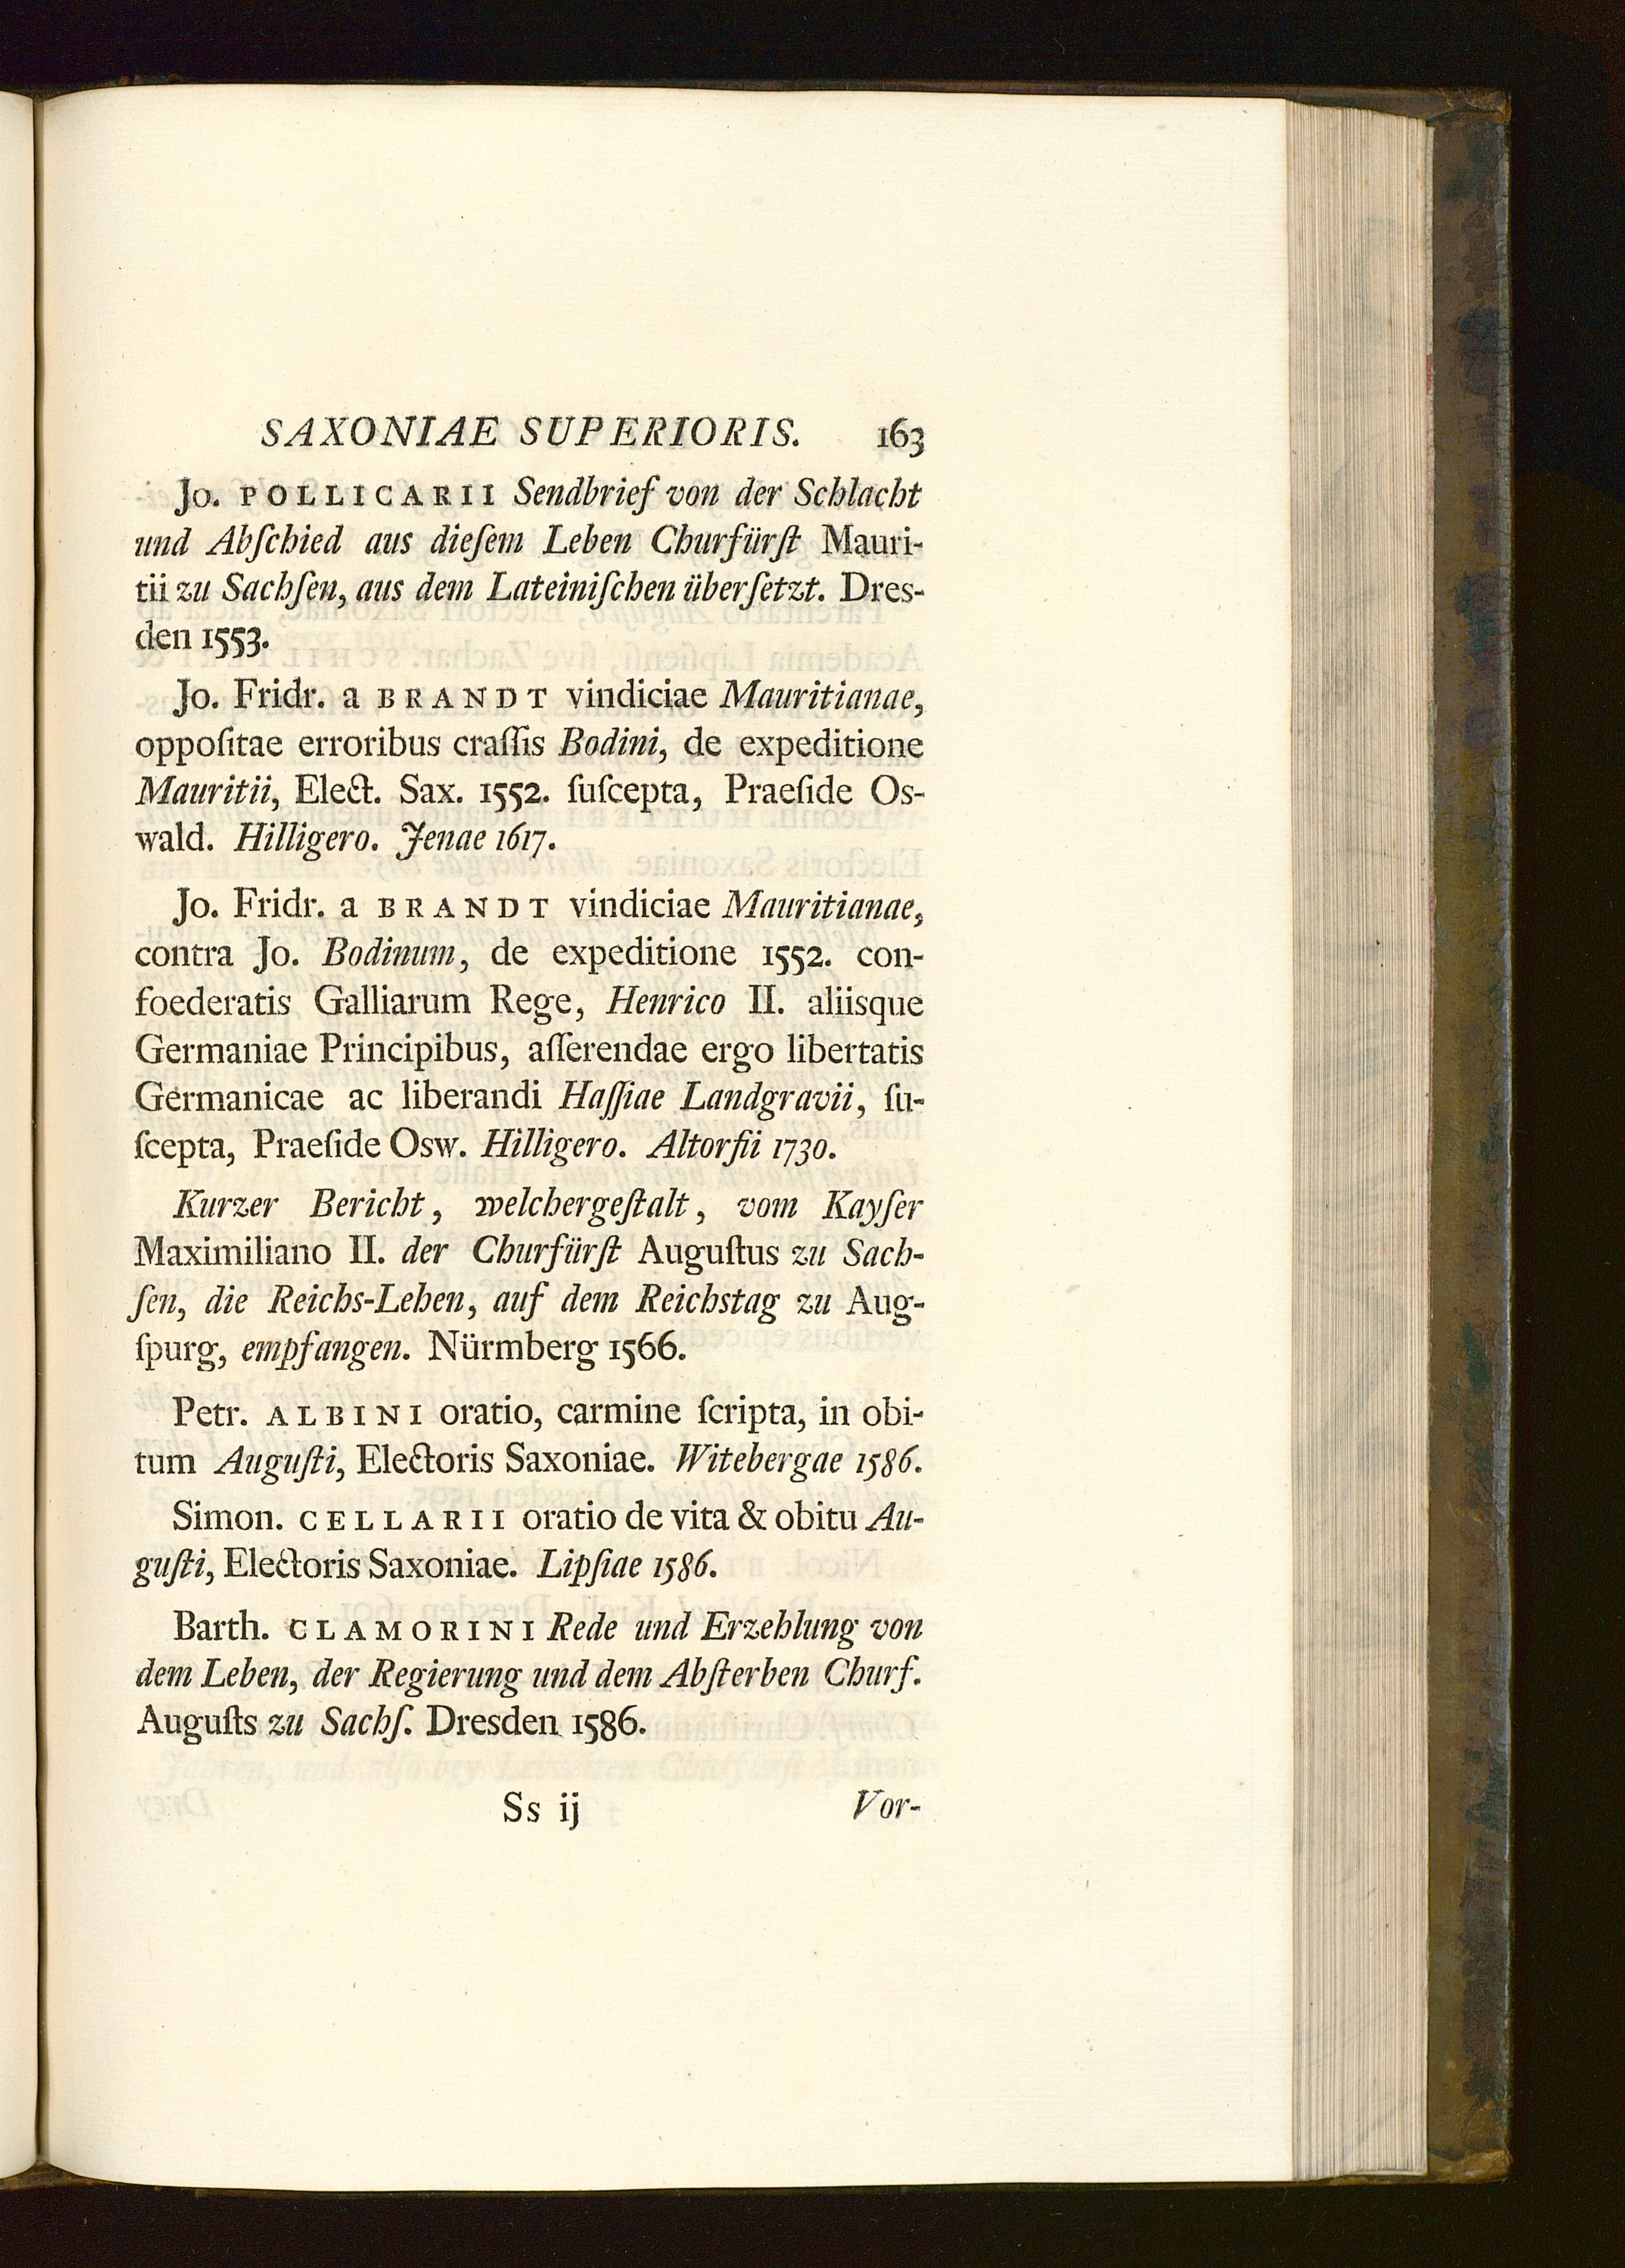 SAXONIAE SUPERIORIS. 163
Jo. POLLICARII Sendbrief von der Schlacht
und Abſchied aus dieſem Leben Churfürſt Mauri-
tii zu Sachſen, aus dem Lateiniſchen überſetzt. Dres-
den 1553.
Jo. Fridr. a BRANDT vindiciae Mauritianae,
oppoſitae erroribus craſſis Bodini, de expeditione
Mauritii, Elect. Sax. 1552. ſuſcepta, Praeſide Os-
wald. Hilligero. Jenae 1617.
Jo. Fridr. a BRANDT vindiciae Mauritianae,
contra Jo. Bodinum, de expeditione 1552. con-
foederatis Galliarum Rege, Henrico II. aliisque
Germaniae Principibus, aſſerendae ergo libertatis
Germanicae ac liberandi Haſſiae Landgravii, ſu-
ſcepta, Praeſide Osw. Hilligero. Altorfii 1730.
Kurzer Bericht, welchergeſtalt, vom Kayſer
Maximiliano II. der Churfürſt Auguſtus zu Sach-
ſen, die Reichs-Lehen, auf dem Reichstag zu Aug-
ſpurg, empfangen. Nürmberg 1566.
Petr. ALBINI oratio, carmine ſcripta, in obi-
tum Auguſti, Electoris Saxoniae. Witebergae 1586.
Simon. CELLARII oratio de vita & obitu Au-
guſti, Electoris Saxoniae. Lipſiae 1586.
Barth. CLAMORINI Rede und Erzehlung von
dem Leben, der Regierung und dem Abſterben Churf.
Auguſts zu Sachſ. Dresden 1586.
Ss ij Vor-